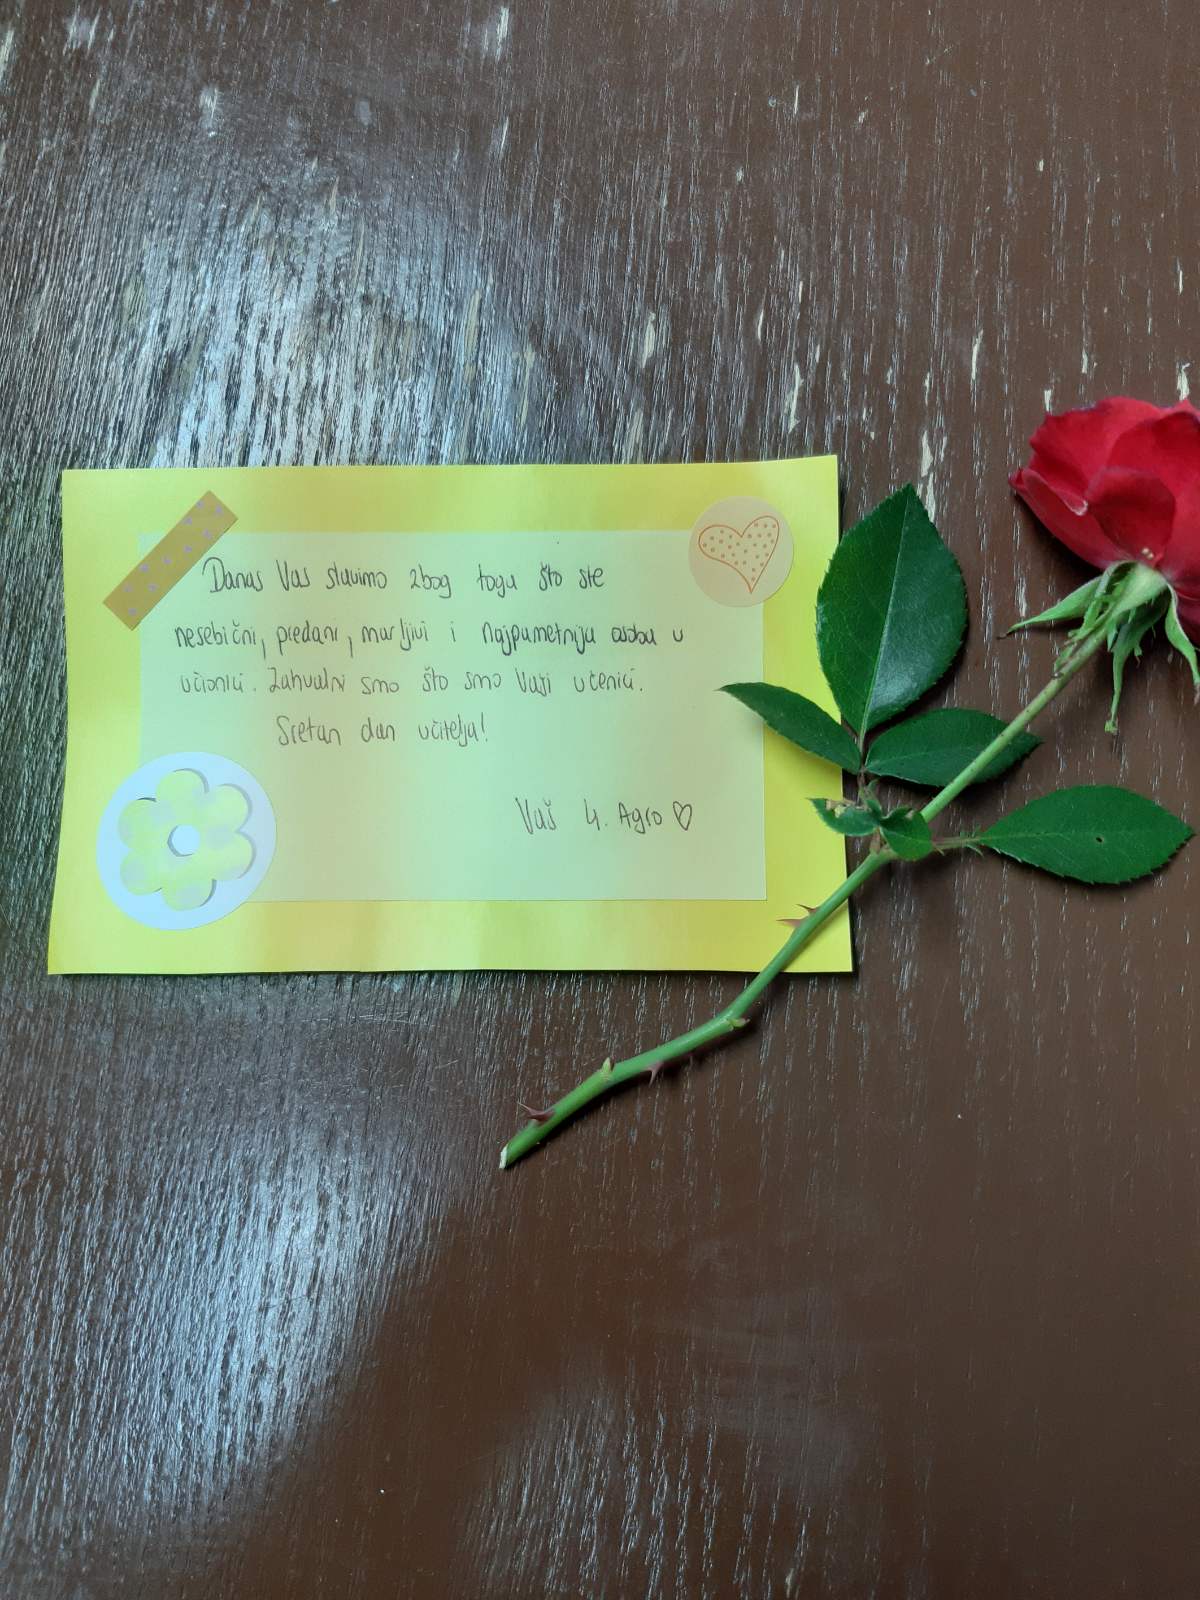 Danas Vas slavimo zbog toga što ste
nesebični, predani, marljivi i najpametnija osoba u
učionici. Zahvalni smo što smo Vaši učenici.
Sretan dan učitelja!
Vaš 4. Agro ♡